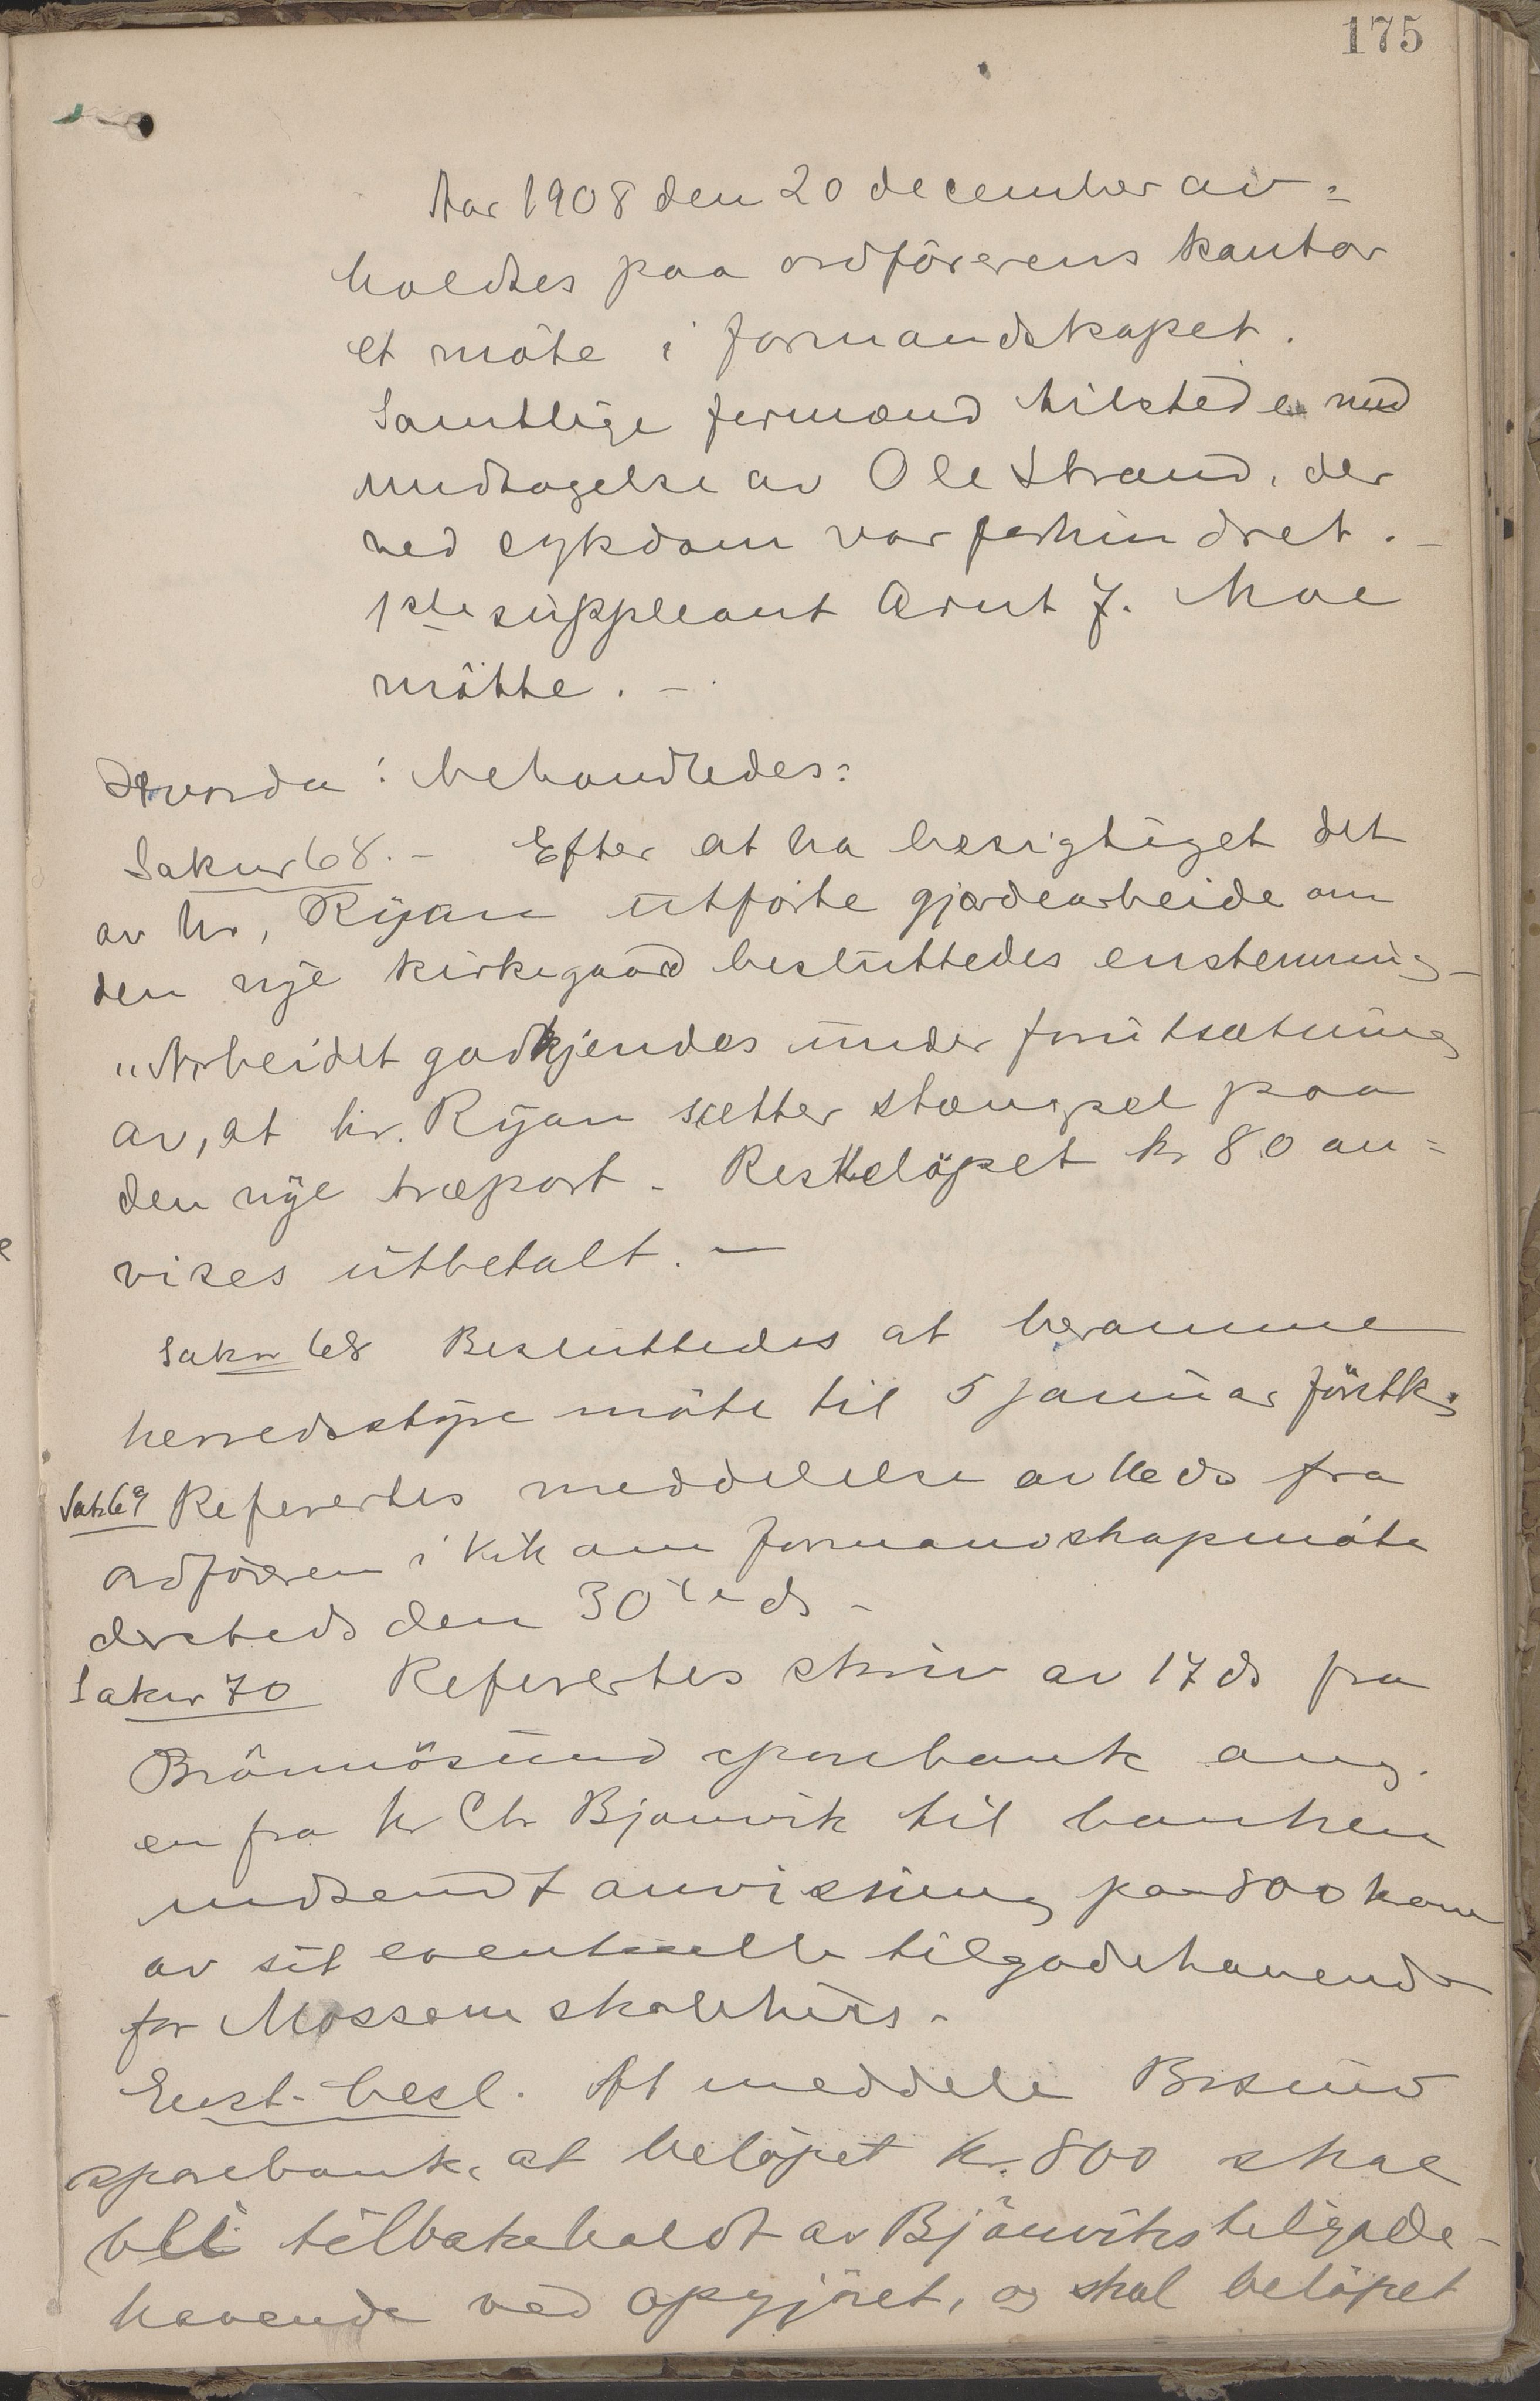 175
Aar 1908 den 20 december av=
holdtes paa ordförerens kontor
et möte i formandskapet.
Samtlige formænd tilstede med
undtagelse av Ole Strand, der
ved sykdom var forhindret. -
1ste suppleant Arnt J. Moe
mötte. -
Hvorda: behandledes:
Saknr 68. - Efter at ha besigtiget det
av hr, Ryan utförte gjærdearbeide om
den nye kirkegaard besluttedes enstemmig -
"Arbeidet godkjendes under forutsætning
av, at hr. Ryan sætter stængsel paa
den nye træport - Restbelöpet kr 80 an=
vises utbetalt. -
Saknr 68 Besluttedes at beramme
herredsstyremöte til 5 januar förstk.
Sak 69 Refertes meddelelse av ds fra
ordföreren i Vik om formandskapmöte
dersteds den 30te ds -
Saknr 70 Refertes skriv av 17 ds fra
Brönnösund sparebank ang.
en fra hr Chr Bjönvik til banken
indsendt anvisning paa 800 kroner
av sit eventuelle tilgodehavende
for Mossem skolehus.
Enst. besl. At meddele Brsund
sparebank, at belöpet kr. 800 skal
bli tilbakeholdt av Bjönviks tilgode-
havende ved opgjöret, og skal belöpet